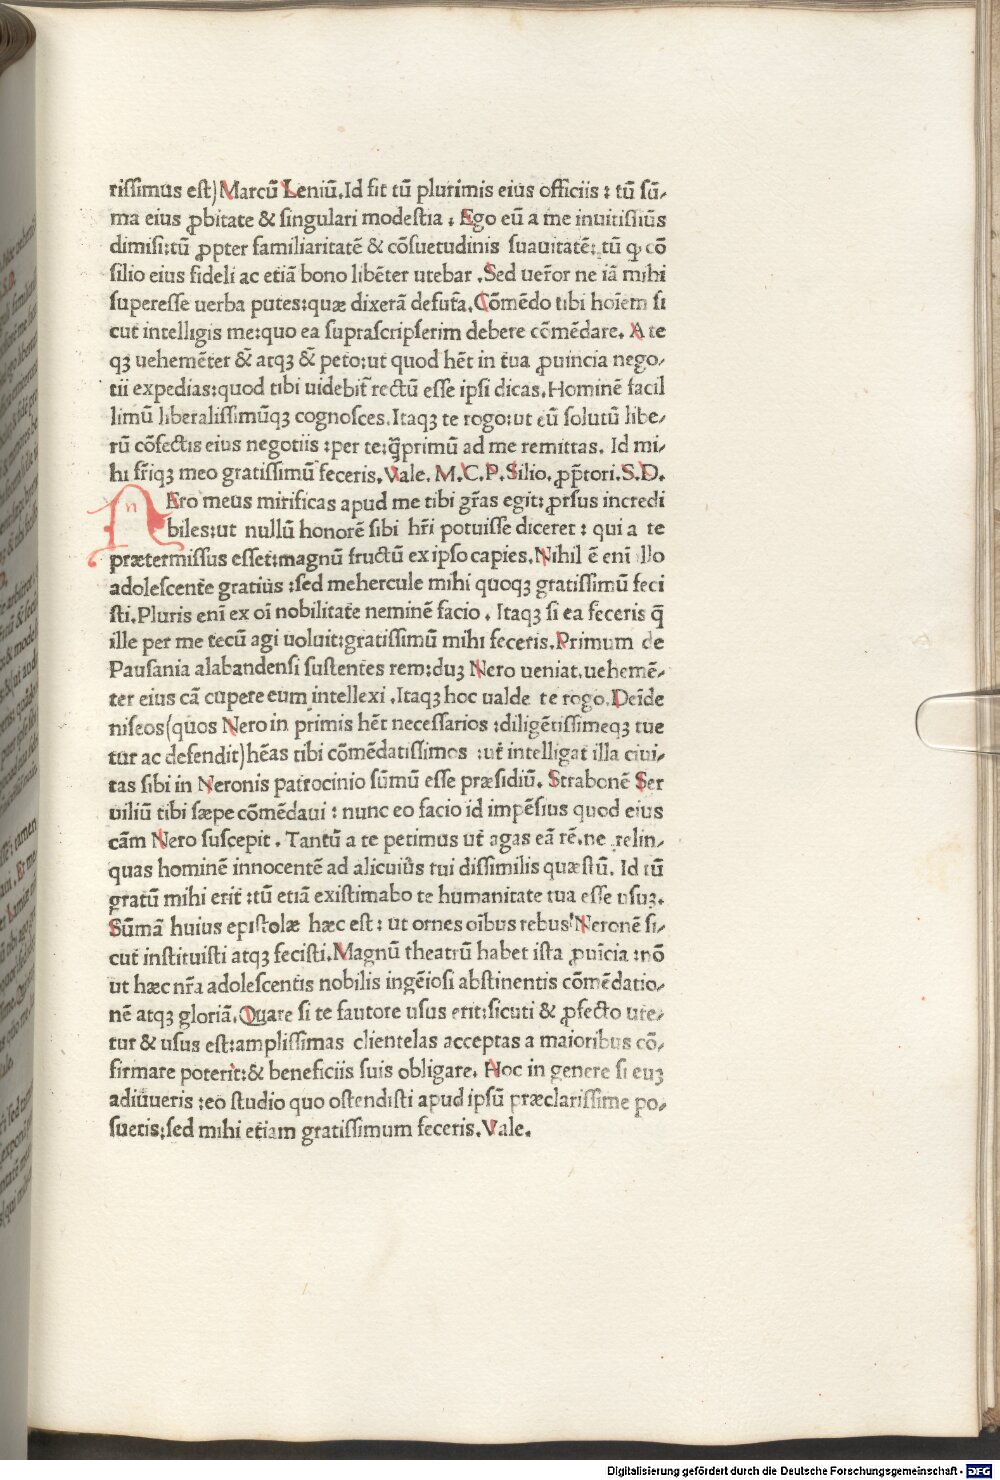 rissimus est) Marcū Leniū. Id fit tū plurimis eius officiis : tū sū-
ma eius ꝓbitate & singulari modestia . Ego eū a me inuitissiūs
dimisi: tū ꝓpter familiaritatē & cōsuetudinis suauitatē: tū q cō
silio eius fideli ac etiā bono libēter utebar . Sed ueror ne iā mihi
superesse uerba putes: quæ dixerā defutā. Cōmēdo tibi hoīem si
cut intelligis me: quo ea suprascripserim debere cōmēdare. A te
qꝫ uehemēter & atqꝫ & peto: ut quod hēt in tua ꝓuincia nego-
tii expedias: quod tibi uidebit rectū esse ipsi dicas. Hominē facil
limū liberalissimūqꝫ cognosces. Itaqꝫ te rogo: ut eū solutū libe-
rū cōfectis eius negotiis : per te: q̄primū ad me remittas. Id mi-
hi fr̄iqꝫ meo gratissimū feceris. Vale. M. C. P. Silio. ꝓp̄tori. S. D.
n
NEro meus mirificas apud me tibi gr̄as egit: prsus incredi
biles: ut nullū honorē sibi hr̄i potuisse diceret : qui a te
prætermissus esset: magnū fructū ex ipso capies. Nihil ē enī illo
adolescente gratiūs : sed mehercule mihi quoqꝫ gratissimū feci
sti. Pluris enī ex oī nobilitate neminē facio . Itaqꝫ si ea feceris q̄
ille per me tecū agi uoluit: gratissimū mihi feceris. Primum de
Pausania alabandensi sustentes rem: duꝫ Nero ueniat. uehemē-
ter eius cā cupere eum intellexi . Itaqꝫ hoc ualde te rogo. Deīde
niseos (quos Nero in primis hēt necessarios : diligētissimeqꝫ tue
tur ac defendit) hēas tibi cōmēdatissimos : ut intelligat illa ciui-
tas sibi in Neronis patrocinio sūmū esse præsidiū. Strabonē Ser
uiliū tibi sæpe cōmēdaui : nunc eo facio id impēsius quod eius
cām Nero suscepit . Tantū a te petimus ut agas eā rē. ne relin-
quas hominē innocentē ad alicuiūs tui dissimilis quæstū. Id tū
gratū mihi erit : tū etiā existimabo te humanitate tua esse usuꝫ.
Sūmā huius epistolæ hæc est : ut ornes oībus rebus Neronē si-
cut instituisti atqꝫ fecisti. Magnū theatrū habet ista ꝓuīcia : nō
ut hæc nr̄a adolescentis nobilis ingēiosi abstinentis cōmēdatio-
nē atqꝫ gloriā. Quare si te fautore usus erit: sicuti & ꝓfecto ute-
tur & usus est: amplissimas clientelas acceptas a maioribus cō-
firmare poterit: & beneficiis suis obligare. Hoc in genere si euꝫ
adiūueris : eo studio quo ostendisti apud ipsū præclarissime po-
sueris: sed mihi etiam gratissimum feceris. Vale.
Digitalisierung gefördert durch die Deutsche Forschungsgemeinschaft - DFG